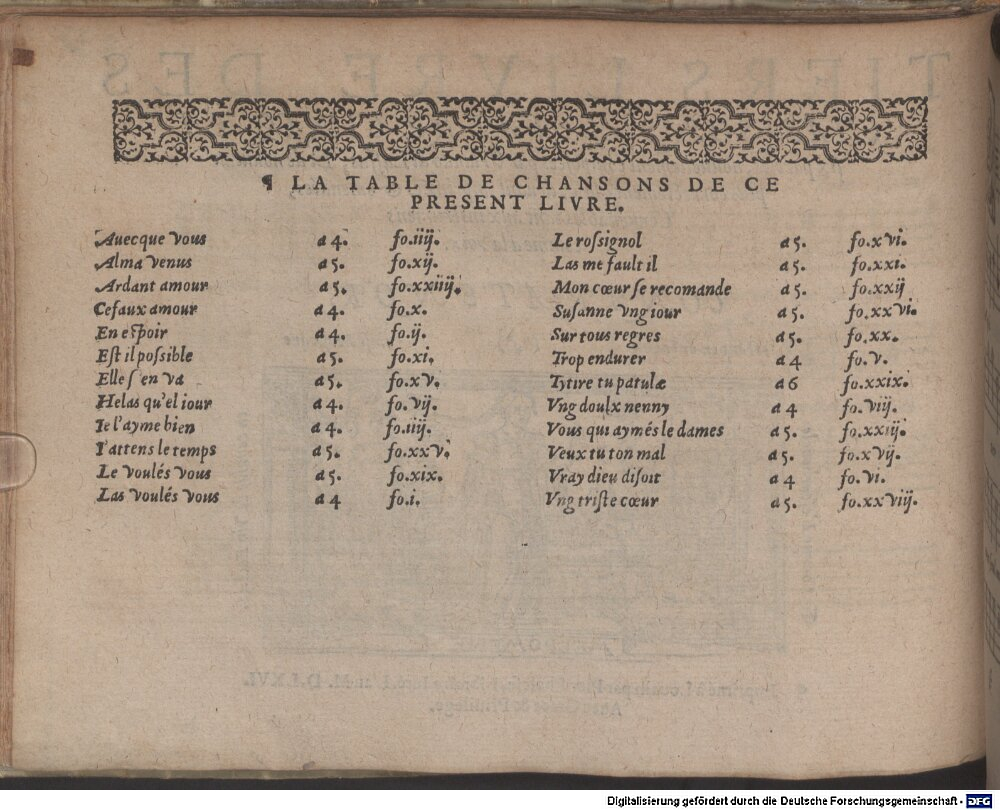 ¶ LA TABLE DE CHANSONS DE CE
PRESENT LIVRE.
Auecque vous a 4. fo.iiij.
Alma venus a 5. fo.xij.
Ardant amour a 5. fo.xxiiij.
Ce faux amour a 4. fo.x.
En espoir a 4. fo.ij.
Est il possible a 5. fo.xi.
Elle s'en va a 5. fo.xv.
Helas qu'el iour a 4. fo.vij.
Ie l'ayme bien a 4. fo.iiij.
I'attens le temps a 5. fo.xxv.
Le voulés vous a 5. fo.xix.
Las voulés vous a 4 fo.i.
Le rossignol a 5. fo.xvi.
Las me fault il a 5. fo.xxi.
Mon cœur se recomande a 5. fo.xxij
Susanne vng iour a 5. fo.xxvi.
Sur tous regres a 5. fo.xx.
Trop endurer a 4 fo.v.
Tytire tu patulæ a 6 fo.xxix.
Vng doulx nenny a 4 fo.viij.
Vous qui aymés le dames a 5. fo.xxiij.
Veux tu ton mal a 5. fo.xvij.
Vray dieu disoit a 4 fo.vi.
Vng triste cœur a 5. fo.xxviij.
Digitalisierung gefördert durch die Deutsche Forschungsgemeinschaft - DFG